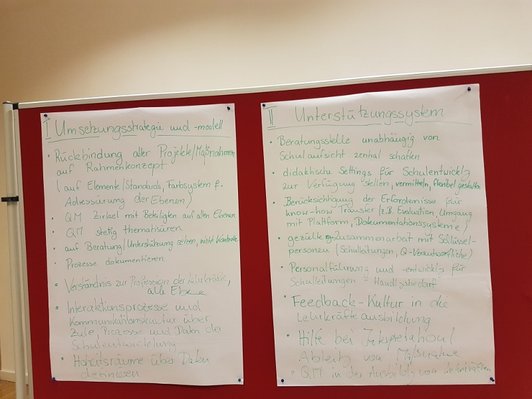 I Umsetzungsstrategie und -modell
• Rückbindung aller Projekte/Maßnahmen
auf Rahmenkonzept
(auf Elemente (Standards, Farbsystem f.
Adressierung der Ebenen)
• QM Zirkel mit Beteiligten auf allen Ebenen
• QM stetig thematisieren
• auf Beratung/Unterstützung setzen, nicht Kontrolle
• Prozesse dokumentieren
• Verständnis zur Profession der Lehrkräfte,
alle Ebene
• Interaktionsprozesse und
Kommunikationskultur über
Ziele, Prozesse und Daten der
Schulentwicklung
• über Daten
II Unterstützungssystem
• Beratungsstelle unabhängig von
Schulaufsicht zentral schaffen
• didaktische Settings für Schulentwickl
zur Verfügung stellen, vermitteln, flexibel gestalten
• Berücksichtigung der Erfordernisse für
know-how Transfer (z.B. Evaluation, Umgang
mit Plattform, Dokumentationssysteme)
• gezielte Zusammenarbeit mit Schlüssel-
personen (Schulleitungen, Q-Verantwortliche)
• Personalführung und -entwickl. für
Schulleitungen - Handlungsbedarf
• Feedback-Kultur in der
Lehrkräfteausbildung
• Hilfe bei Interpretation/
Ableitg von Maßnahmen
• QM in der Ausbildg von